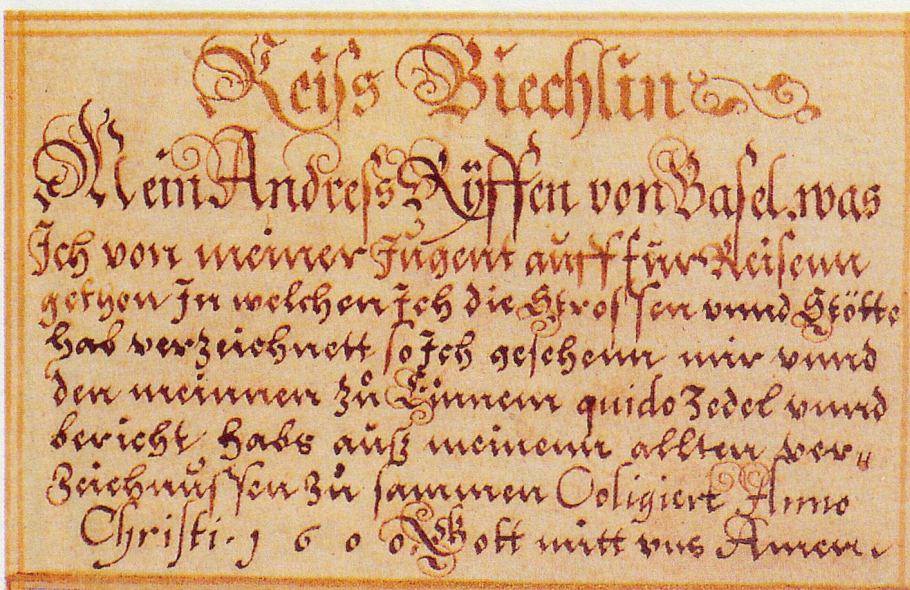 Reiss Biechlin
Mein Andress Ryffen von Basel. was
Ich von meiner Jugent auff für Reisenn
gethon In welchen Ich die Strossen vnnd Stötte
hab verzeichnett so Ich gesehenn mir vnnd
den meinnen zů Einnem quido Zedel vnnd
bericht habs auß meinenn allten ver„
Zeichnussen zů sammen Coligiert Anno
Christi. 1600 Gott mitt vns Amen.